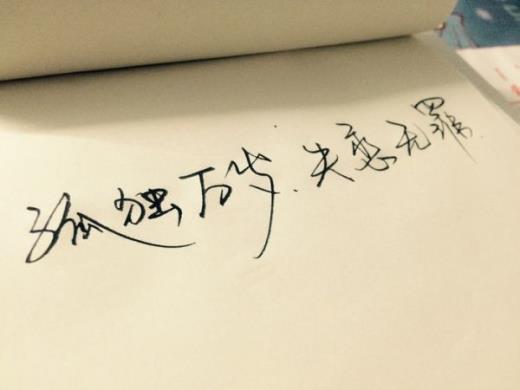 孤独万岁、失恋无罪